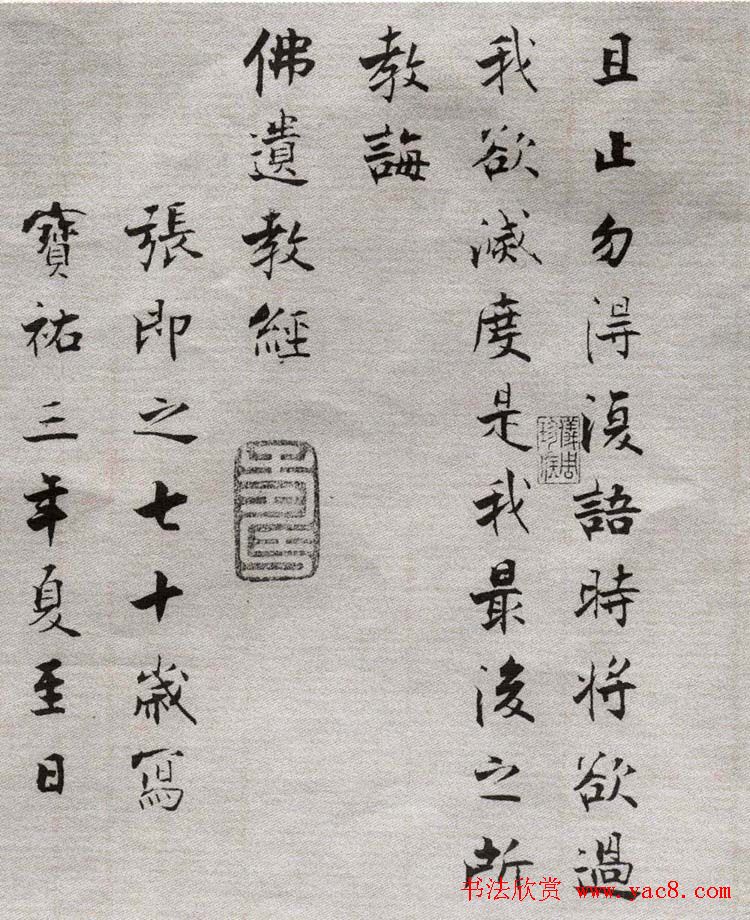 且止勿得復語時將欲過
我欲滅度是我最後之所
教誨
佛遺教經
張即之七十歲寫
寶祐三年夏至日
儀周珍藏
书法欣赏 www.yac8.com